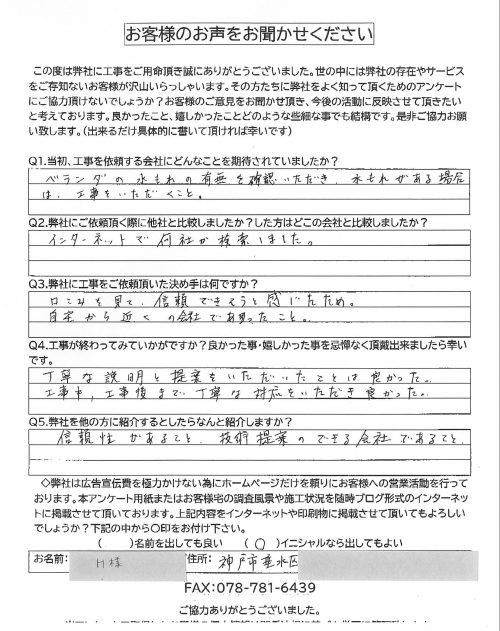 お客様のお声をお聞かせください
この度は弊社に工事をご用命頂き誠にありがとうございました。世の中には弊社の存在やサービス
をご存知ないお客様が沢山いらっしゃいます。その方たちに弊社をよく知って頂くためのアンケート
にご協力頂けないでしょうか？お客様のご意見をお聞かせ頂き、今後の活動に反映させて頂きたい
と考えております。良かったこと、嬉しかったことどのような些細な事でも結構です。是非ご協力お願
い致します。(出来るだけ具体的に書いて頂ければ幸いです)
Q1.当初、工事を依頼する会社にどんなことを期待されていましたか？
ベランダの水もれの有無を確認いただき、水もれがある場合
は、工事をいただくこと。
Q2.弊社にご依頼頂く際に他社と比較しましたか？した方はどこの会社と比較しましたか？
インターネットで何社か検索しました。
Q3.弊社に工事をご依頼頂いた決め手は何ですか？
口こみを見て、信頼できそうと感じたため。
自宅から近くの会社であったこと。
Q4.工事が終わってみていかがですか？良かった事・嬉しかった事を忌憚なく頂戴出来ましたら幸い
です。
丁寧な説明と提案をいただいたことは良かった。
工事中、工事後まで丁寧な対応をいただき良かった。
Q5.弊社を他の方に紹介するとしたらなんと紹介しますか？
信頼性があること、技術提案のできる会社であること。
◇弊社は広告宣伝費を極力かけない為にホームページだけを頼りにお客様への営業活動を行って
おります。本アンケート用紙またはお客様宅の調査風景や施工状況を随時ブログ形式のインターネッ
トに掲載させて頂いております。上記内容をインターネットや印刷物に掲載させて頂いてもよろしい
でしょうか？下記の中から〇印をお付け下さい。
(　)名前を出しても良い　(〇)イニシャルなら出してもよい
お名前： H様 住所： 神戸市垂水区
FAX:078-781-6439
ご協力ありがとうございました。